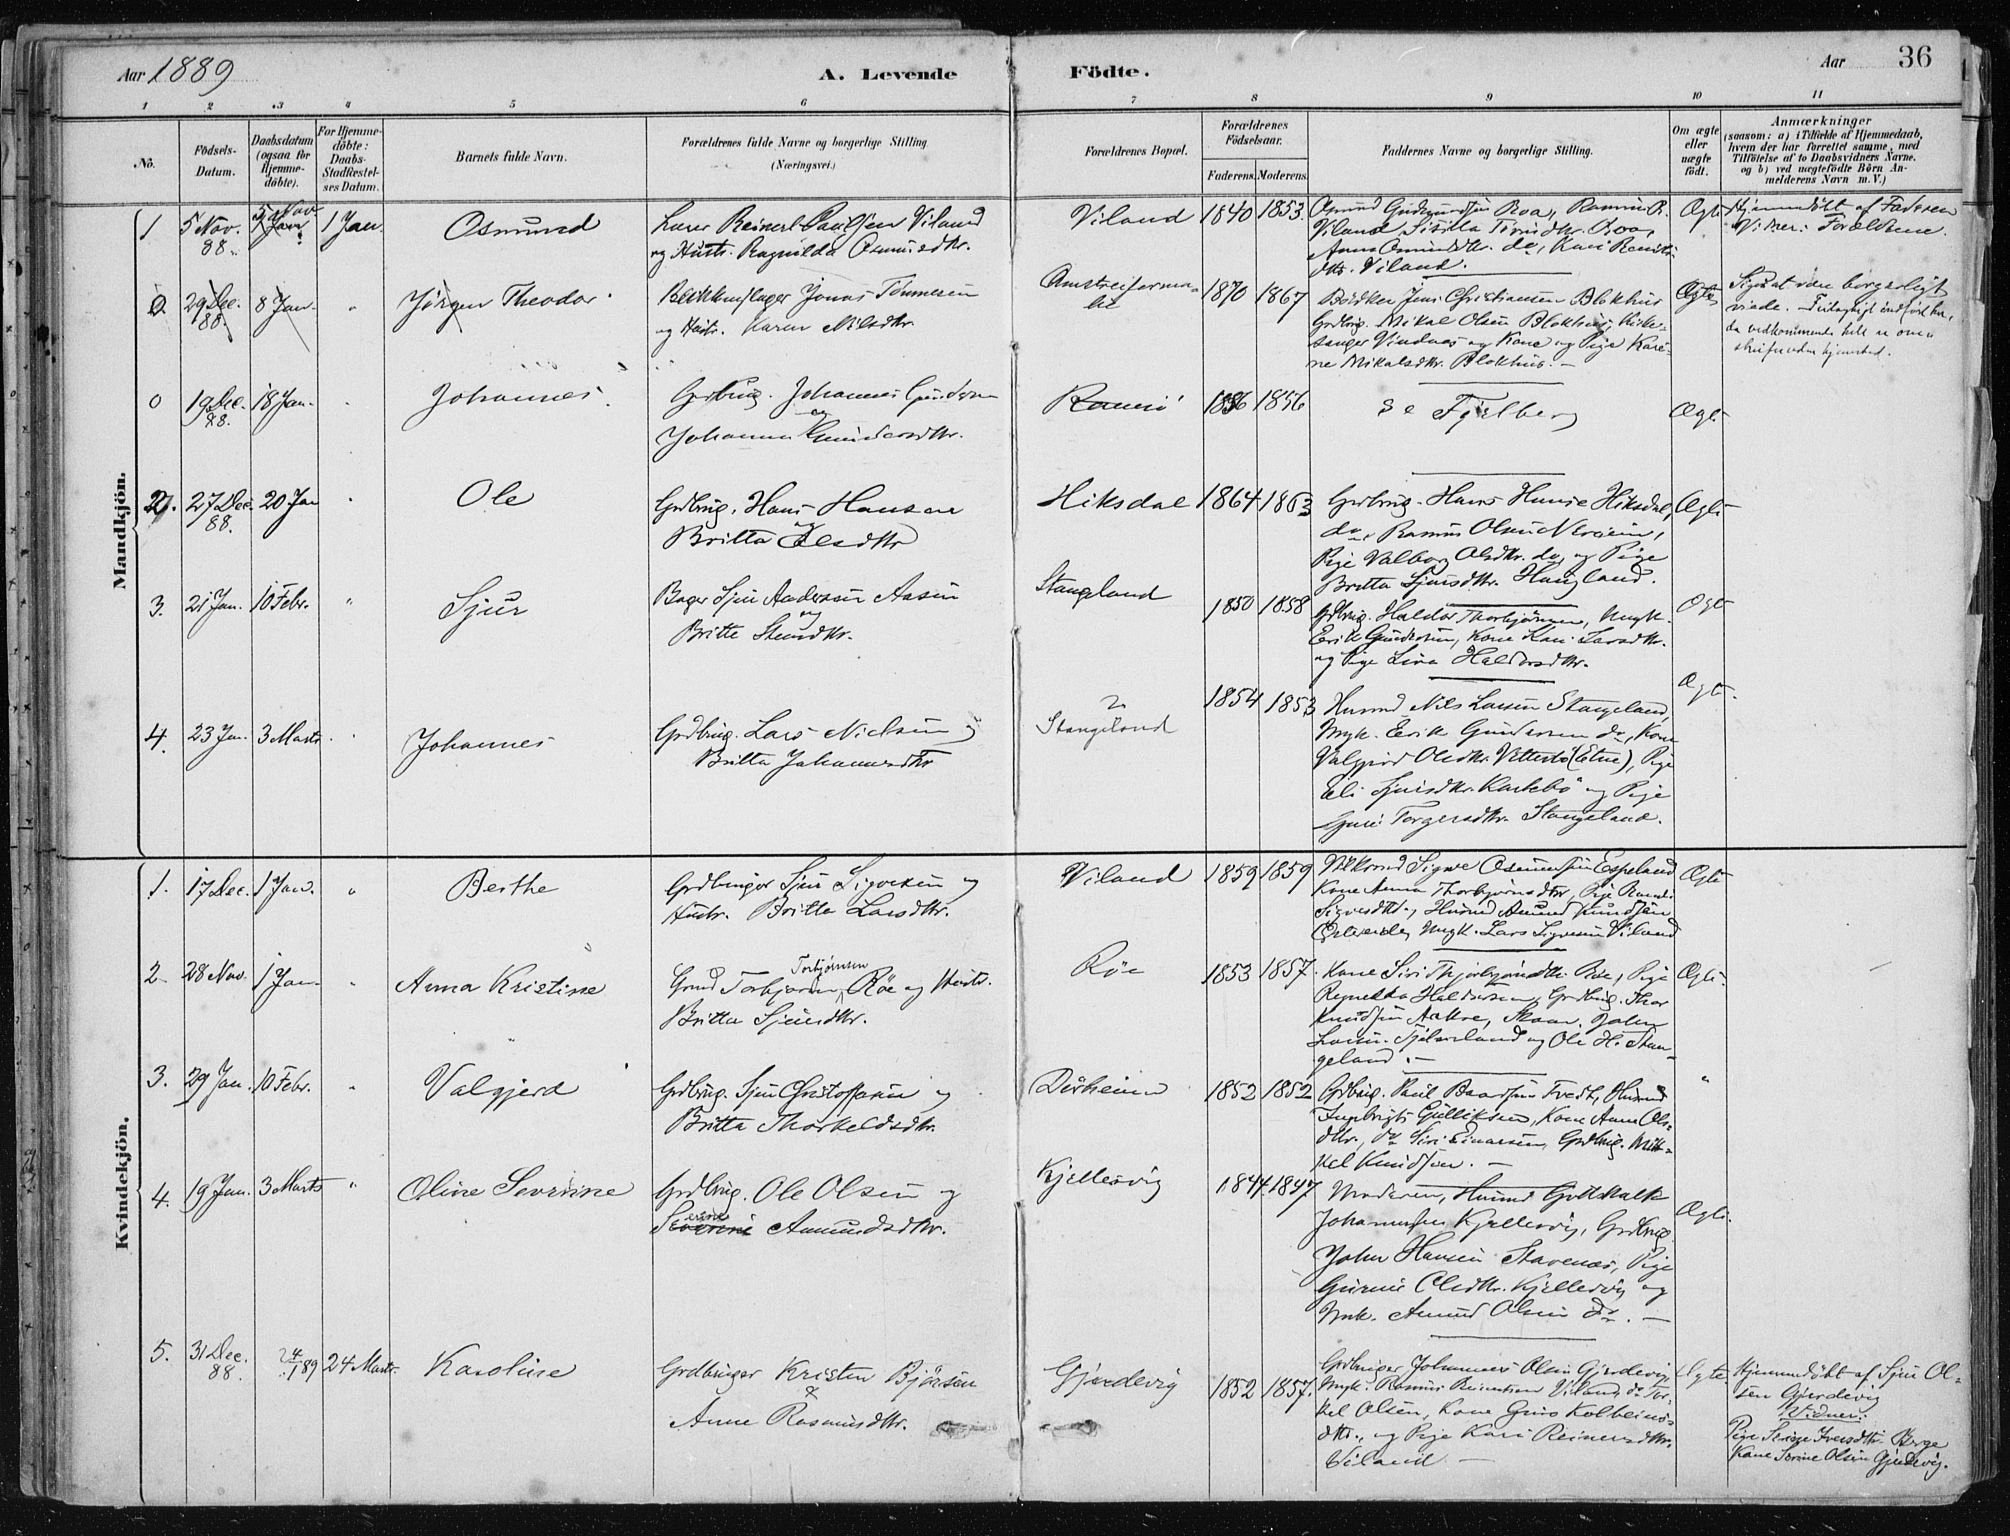 Aar 1889
A. Levende
Födte.
Aar
36
1 2 3 4 5 6 7 8 9 10 11
No.
Födsels-
Datum.
Daabsdatum
(ogsaa for
Hjemme-
döbte).
For Hjemme-
döbte:
Daabs-
Stadfæstel-
ses Datum.
Barnets fulde Navn.
Forældrenes fulde Navne og borgerlige Stilling
(Næringsvei.)
Forældrenes Bopæl.
Forældrenes
Födselsaar.
Faderens. Moderens.
Faddernes Navne og borgerlige Stilling.
Om ægte
eller
uægte
födt.
Anmærkninger
(saasom: a) i Tilfælde af Hjemmedaab,
hvem der har forrettet samme, med
Tilföielse af to Daabsvidners Navne.
og b) ved uægtefödte Börn An-
melderens Navn m. V.)
Mandkjön.
1
5 Nov.
88.
5 Nov
1 Jan.
Osmund
Lærer Reinert Paulsen Viland
og Hustr. Ragnilda Osmundsdtr.
Viland
1840
1853.
Viland
dtr. Viland.
Ægte
Hjemmedöbt af Faderen
Vidner: Forældrene.
29 Dec.
88.
8 Jan.
Jörgen Theodor
Jonas Tönnesen
og Hustr. Karen Nilsdtr.
1870
1867
Bödker Jens Christiansen Blokhus
Grdbrug. Mikal Olsen Blokhus, Kirke-
sanger Vindnes og Kone og Pige Kari-
ne Mikalsdtr. Blokhus. -
Ægte
0
19 Dec.
88.
18 Jan.
Johannes
Grdbrug. Johannes Gundersen
og
Johanna Gundersdtr.
Ramsö
1856
1856
Se Fjelberg
Ægte
2.
27 Dec.
88.
20 Jan
Ole
Grdbrug. Hans Hansen
og
Britta
Hiksdal
1864
1863
Grdbrug. Hans Hansen Hiksdal,
do Rasmus Olsen
Pige Valborg Olsdtr. do, og Pige
Britta Sjursdtr. Haugland.
Ægte
3.
21 Jan.
10 Febr.
Sjur
Bager Sjur Andersen Aasen
og
Britte
Stangeland
1850
1858
Grdbrug. Haldor Thorbjörnsen, Ungk.
Erik Gundersen, Kone Kari Larsdtr.
og Pige Lina Haldorsdtr.
Ægte
4.
23 Jan.
3 Marts
Johannes
Grdbrug. Lars Nielsen og
Britta Johannesdtr
Stangeland
1854
1853
Husmd Nils Larsen Stangeland,
Ungk. Erik Gundersen do, Kone
Valgjerd Olsdtr. (Etne), Pige
Eli Sjursdtr. og Pige
Guri Torgersdtr. Stangeland.
Ægte
Kvindekjön.
1.
17 Dec.
1 Jan.
Berthe
Grdbruger Sjur Sigvesen og
Hustr. Britta Larsdtr.
Viland
1859
1859
Sigve Osmundsen Espeland
Kone Anna Thorbjörnsdtr, Pige
Sigvesdtr., Husmd Amund Knudsen
Ungk. Lars Sigvesen Viland
Ægte
2
28 Nov.
1 Jan.
Anna Kristine
Torbjörnsen
Röe og Hustr.
Britta Sjursdtr.
Röe
1853
1857.
Kone Siri Thorbjörnsdtr. Röe, Pige
Grdbrug. Thor
Knudsen Aakre, John
Larsen og Ole H. Stan-
geland. -
Ægte.
3.
29 Jan.
10 Febr.
Valgjerd
Grdbrug. Sjur Christoffersen og
Britta Thorkeldsdtr.
Dirheim
1852
1852
Grdbrug. Paul Baardsen Tvedt, Husmd
Ingebrigt Gulliksen, Kone Anne Ols-
dtr., do Siri Einarsen, Grdbrug. Mik-
kel Knudsen. -
"
4.
19 Jan.
3 Marts
Oline Severine
Grdbrug. Ole Olsen og
Amundsdtr.
Kjellesvig
1844.
1847
Moderen, Husmd Gottskalk
Johannesen Kjellesvig, Grdbrug.
John Hansen Stavenæs, Pige
Gurine Olsdtr. Kjellesvig og
Ungk. Amund Olsen do. -
Ægte.
5.
31 Dec.
88.
24 Marts.
Karoline
Grdbruger Kristen Björsen
&
Anne Rasmusdtr.
Gjerdevig
1852
1857.
Grdbruger Johannes Olsen Gjerdevig,
Ungk. Rasmus Reinertsen Viland, do Tor-
kel Olsen, Kone Guro Kolbeins-
dtr., og Pige Kari Reinersdtr.
Viland -
Ægte.
Hjemmedöbt af Sjur Ol-
sen Gjerdevig
Vidner:
Pige Serine Iversdtr. Berge
Kone Serine Olsen Gjerdevig.